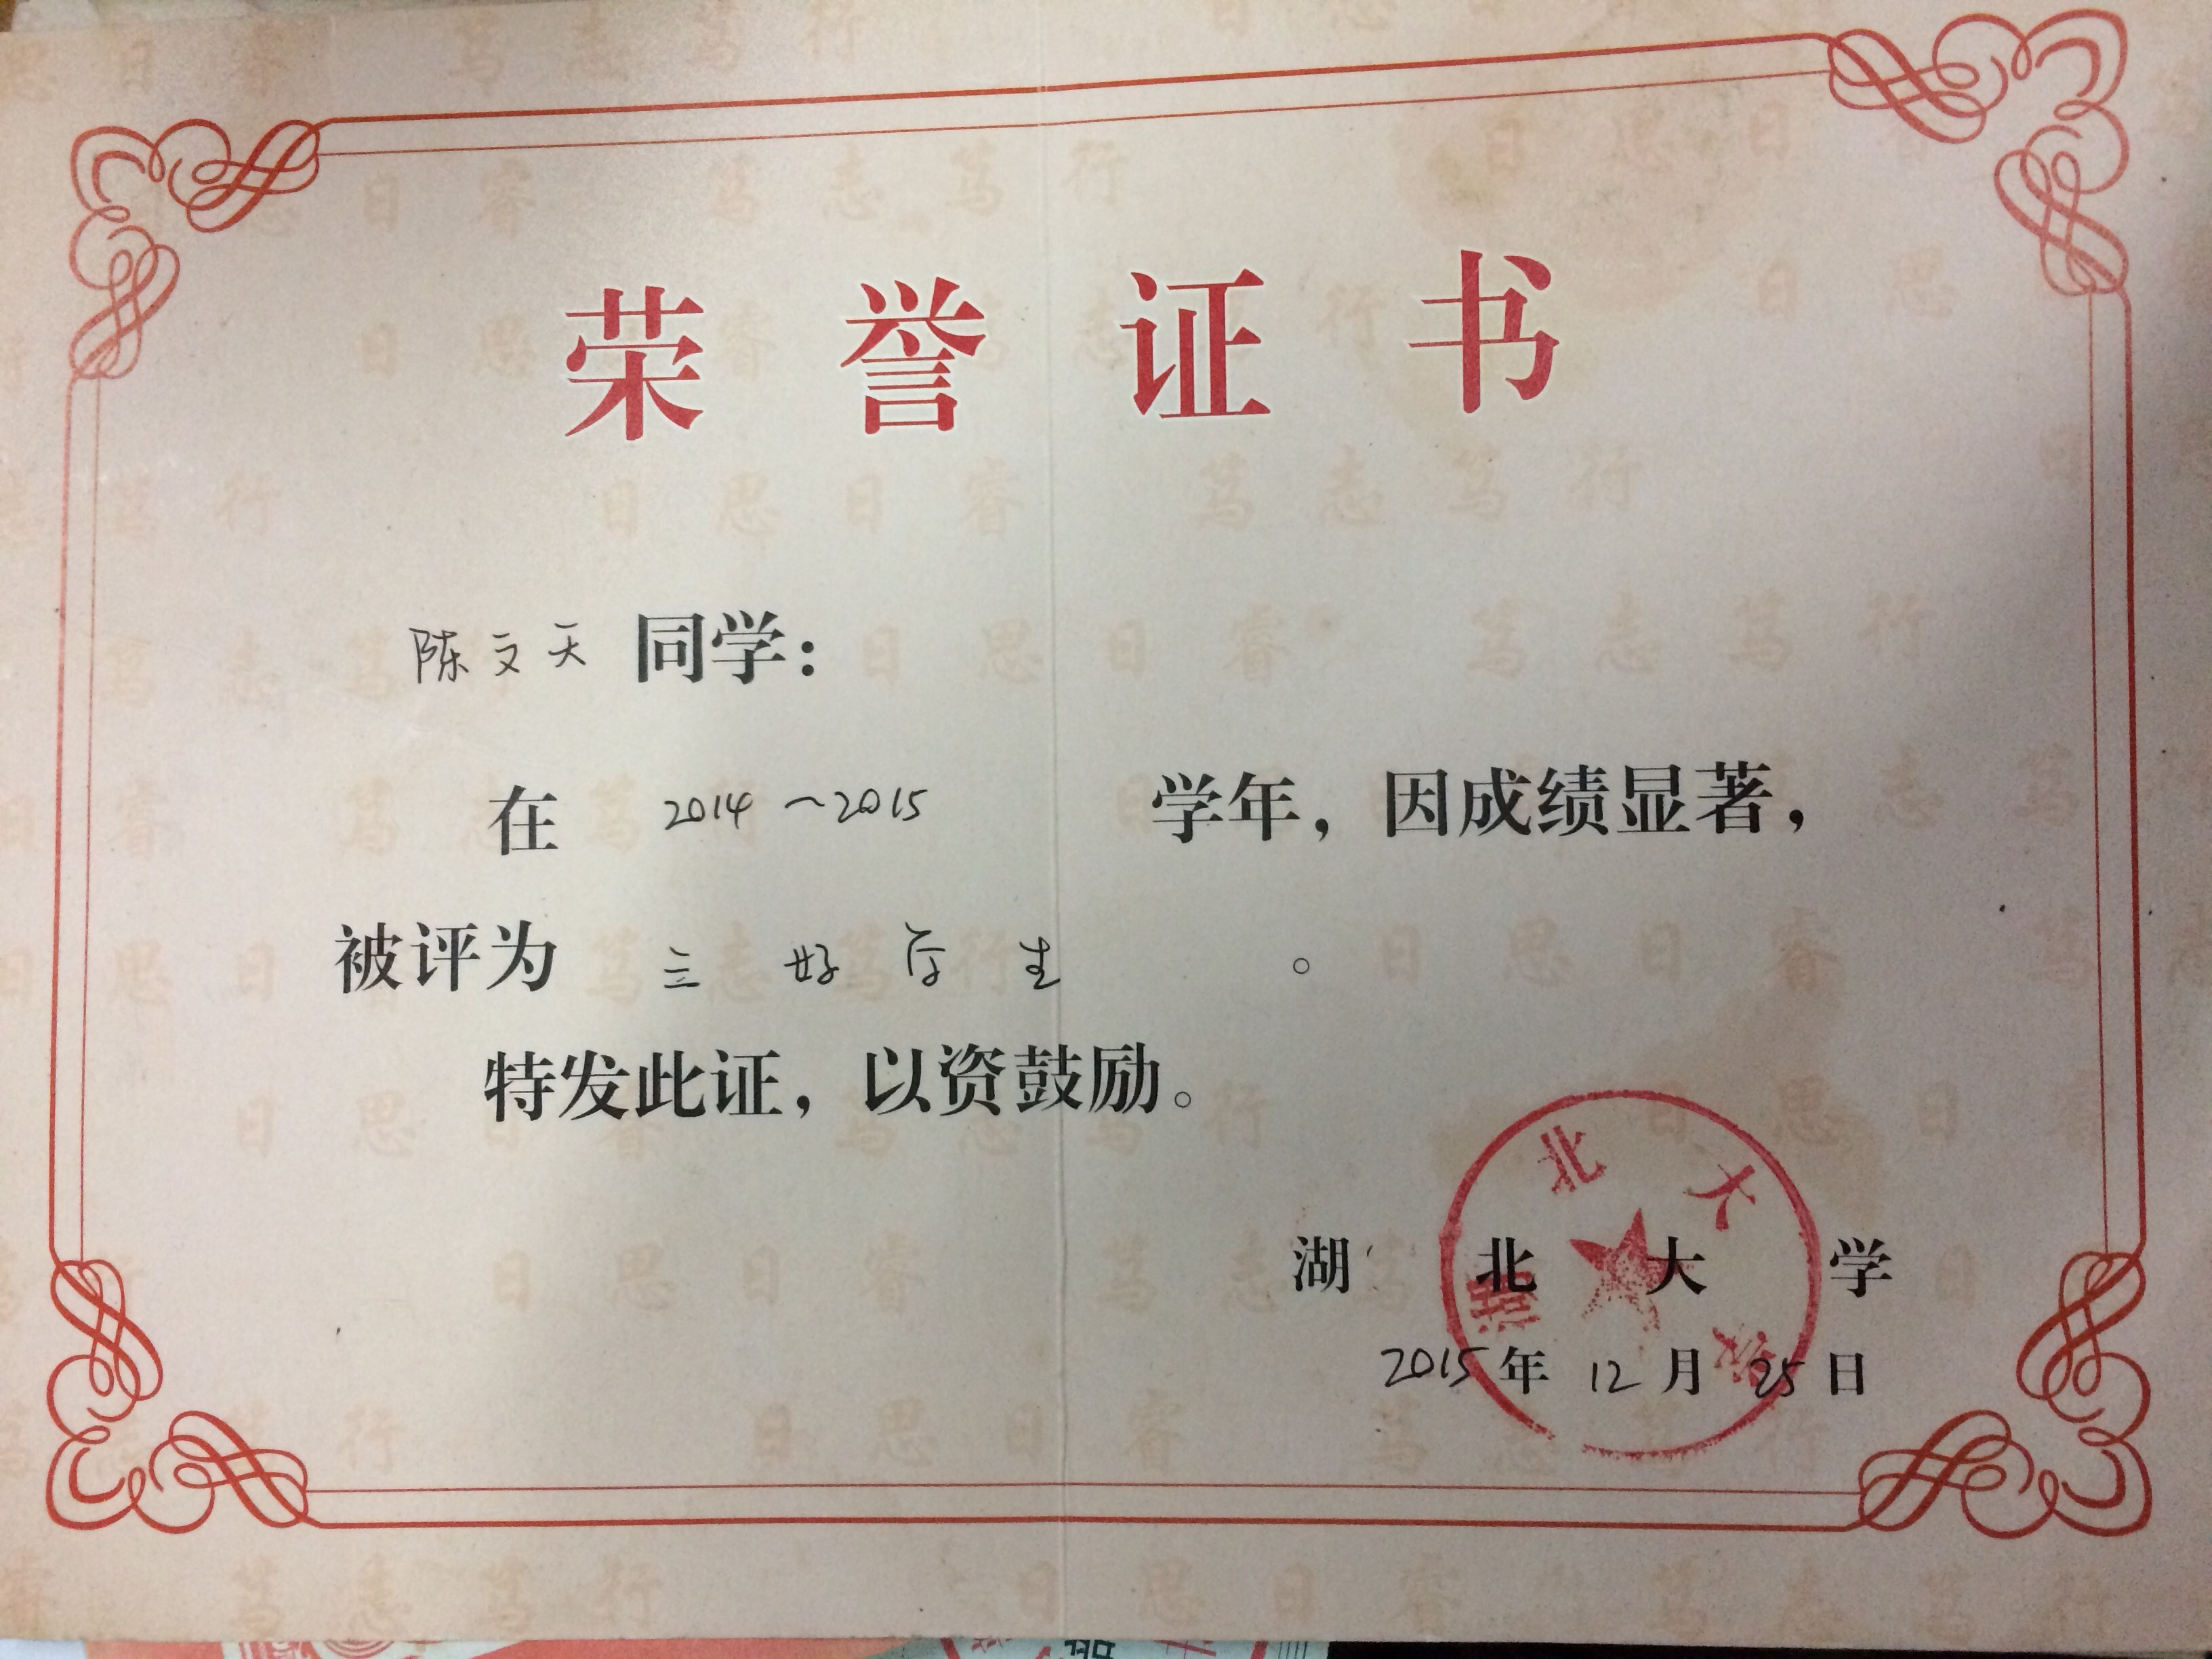 荣誉证书
陈文天同学：
在 2014～2015 学年，因成绩显著，
被评为 三好学生 。
特发此证，以资鼓励。
湖北大学
2015年12月25日
湖北大学
日思日睿 笃志笃行